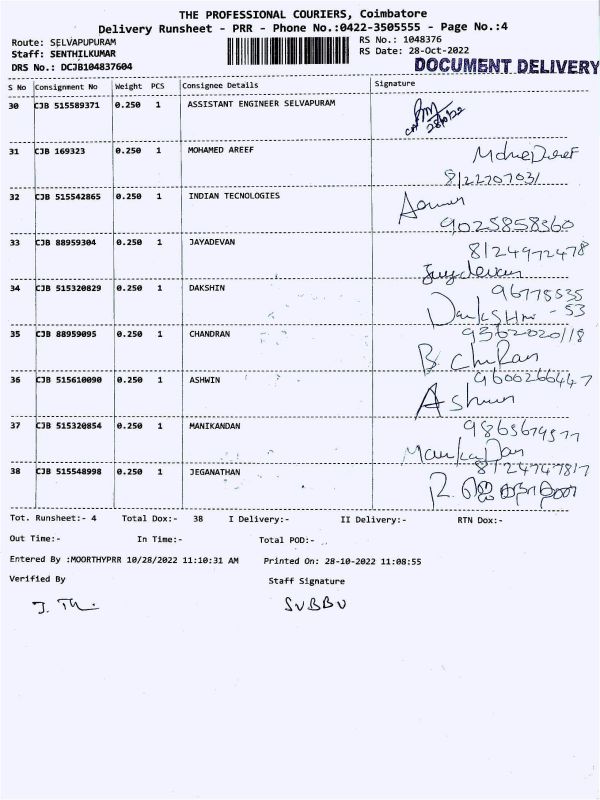 THE PROFESSIONAL COURIERS, Coimbatore
Delivery Runsheet - PRR - Phone No.:0422-3505555 - Page No.:4
Route: SELVAPUPURAM RS No.: 1048376
Staff: SENTHILKUMAR RS Date: 28-Oct-2022
DRS No.: DCJB104837604 DOCUMENT DELIVERY
S No Consignment No Weight PCS Consignee Details Signature
30 CJB 515589371 0.250 1 ASSISTANT ENGINEER SELVAPURAM
28/10/22
31 CJB 169323 0.250 1 MOHAMED AREEF
32 CJB 515542865 0.250 1 INDIAN TECNOLOGIES
9025858360
33 CJB 88959304 0.250 1 JAYADEVAN 8124972478
Jaydevan
34 CJB 515320829 0.250 1 DAKSHIN 96778535
- 53
35 CJB 88959095 0.250 1 CHANDRAN 9362020118
36 CJB 515610090 0.250 1 ASHWIN 9600266447
Ashwin
37 CJB 515320854 0.250 1 MANIKANDAN
38 CJB 515548998 0.250 1 JEGANATHAN 8124747817
Tot. Runsheet:- 4 Total Dox:- 38 I Delivery:- II Delivery:- RTN Dox:-
Out Time:- In Time:- Total POD:-
Entered By :MOORTHYPRR 10/28/2022 11:10:31 AM Printed On: 28-10-2022 11:08:55
Verified By Staff Signature
SUBBU